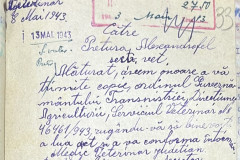 8 Mai 1943
2750
3 Mai
13 MAI 1943
Către
Pretura, Alexandrfel
serv. vet.
Alăturat, avem onoare a vă
trimite copie, ordinul Guvernă-
mântului Transnistriei, Direcțiunea
Agriculturii, Serviciul Veterinar Nº
46461/943, rugându-vă să bine voiți
a lua act și a vă conforma întocmai
Medic Veterinar Județean